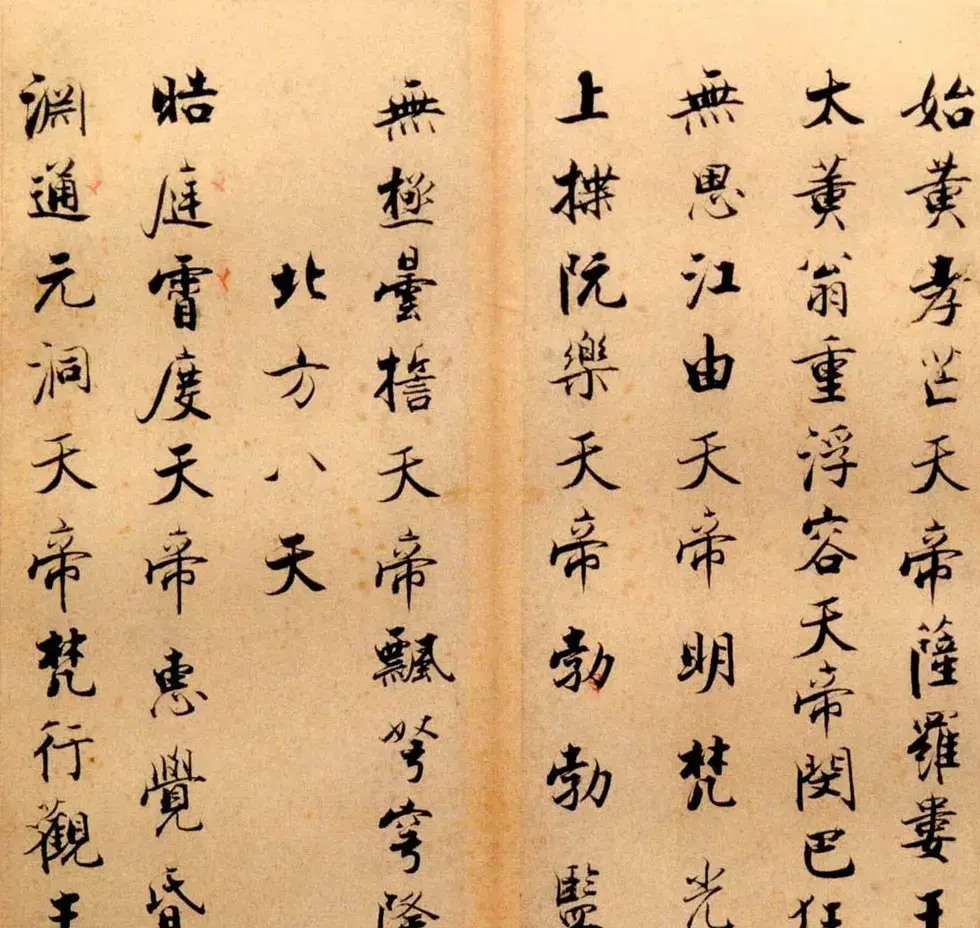 始黄孝芒天帝薩羅婁王
太黄翁重浮容天帝閔巴狂
無思江由天帝明梵光
上揲阮樂天帝勃勃監
無極曇誓天帝飄弩穹隆
北方八天
晧庭霄度天帝惠覺昏
淵通元洞天帝梵行觀生